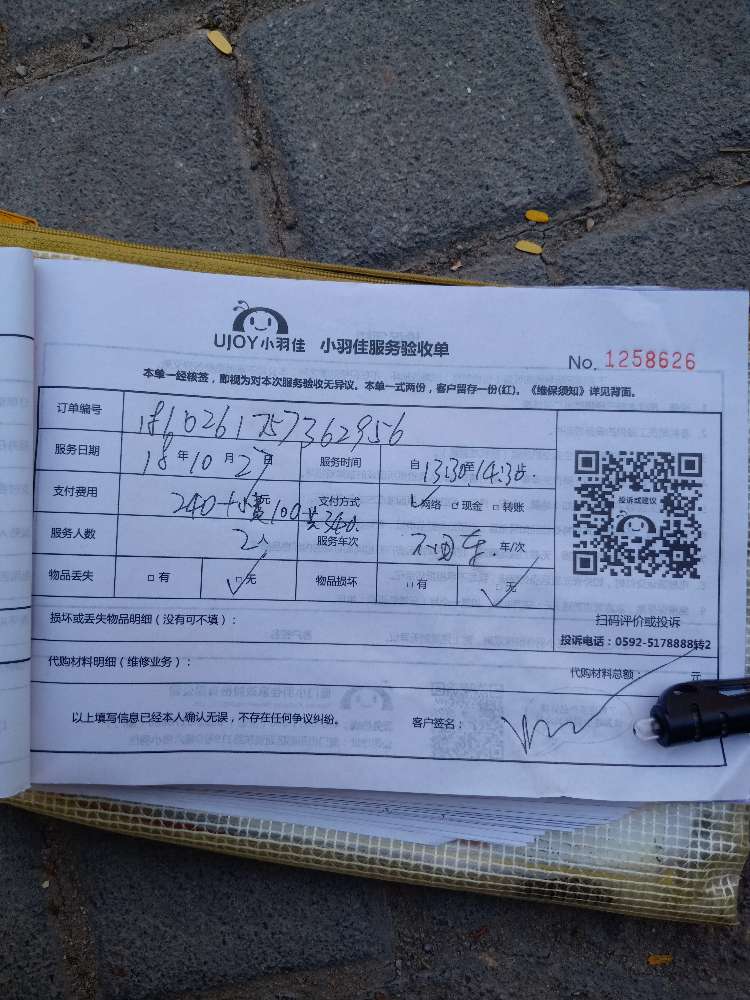 UJOY小羽佳 小羽佳服务验收单
No. 1258626
本单一经核签，即视为对本次服务验收无异议。本单一式两份，客户留存一份(红)。《维保须知》详见背面。
订单编号 1810261757362956
服务日期 18年10月2日 服务时间 自13:30至14:30
支付费用 240+小费100共340元 支付方式 网络 □现金 □转账
服务人数 2人 服务车次 年/次
物品丢失 □有 □无 物品损坏 □有 □无
投诉或建议
扫码评价或投诉
投诉电话：0592-5178888转2
损坏或丢失物品明细（没有可不填）：
代购材料明细（维修业务）： 代购材料总额： 元
以上填写信息已经本人确认无误，不存在任何争议纠纷。 客户签名：